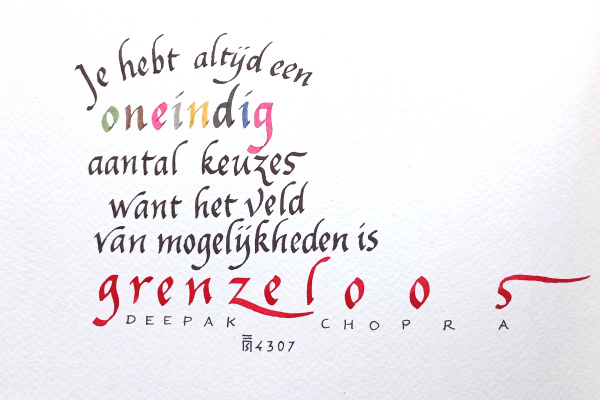 Je hebt altijd een
oneindig
aantal keuzes
want het veld
van mogelijkheden is
grenzeloos
DEEPAK CHOPRA
4307